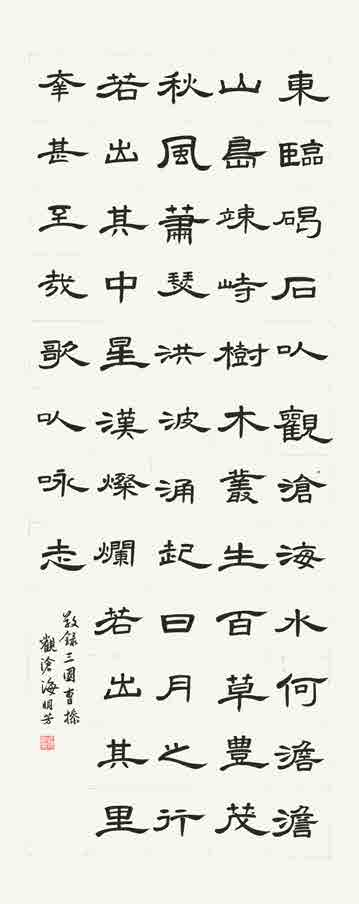 東臨碣石以觀滄海水何澹澹
山島竦峙樹木叢生百草豊茂
秋風蕭瑟洪波涌起日月之行
若出其中星漢燦爛若出其里
幸甚至哉歌以咏志
敬録三國曹操
觀滄海明芳